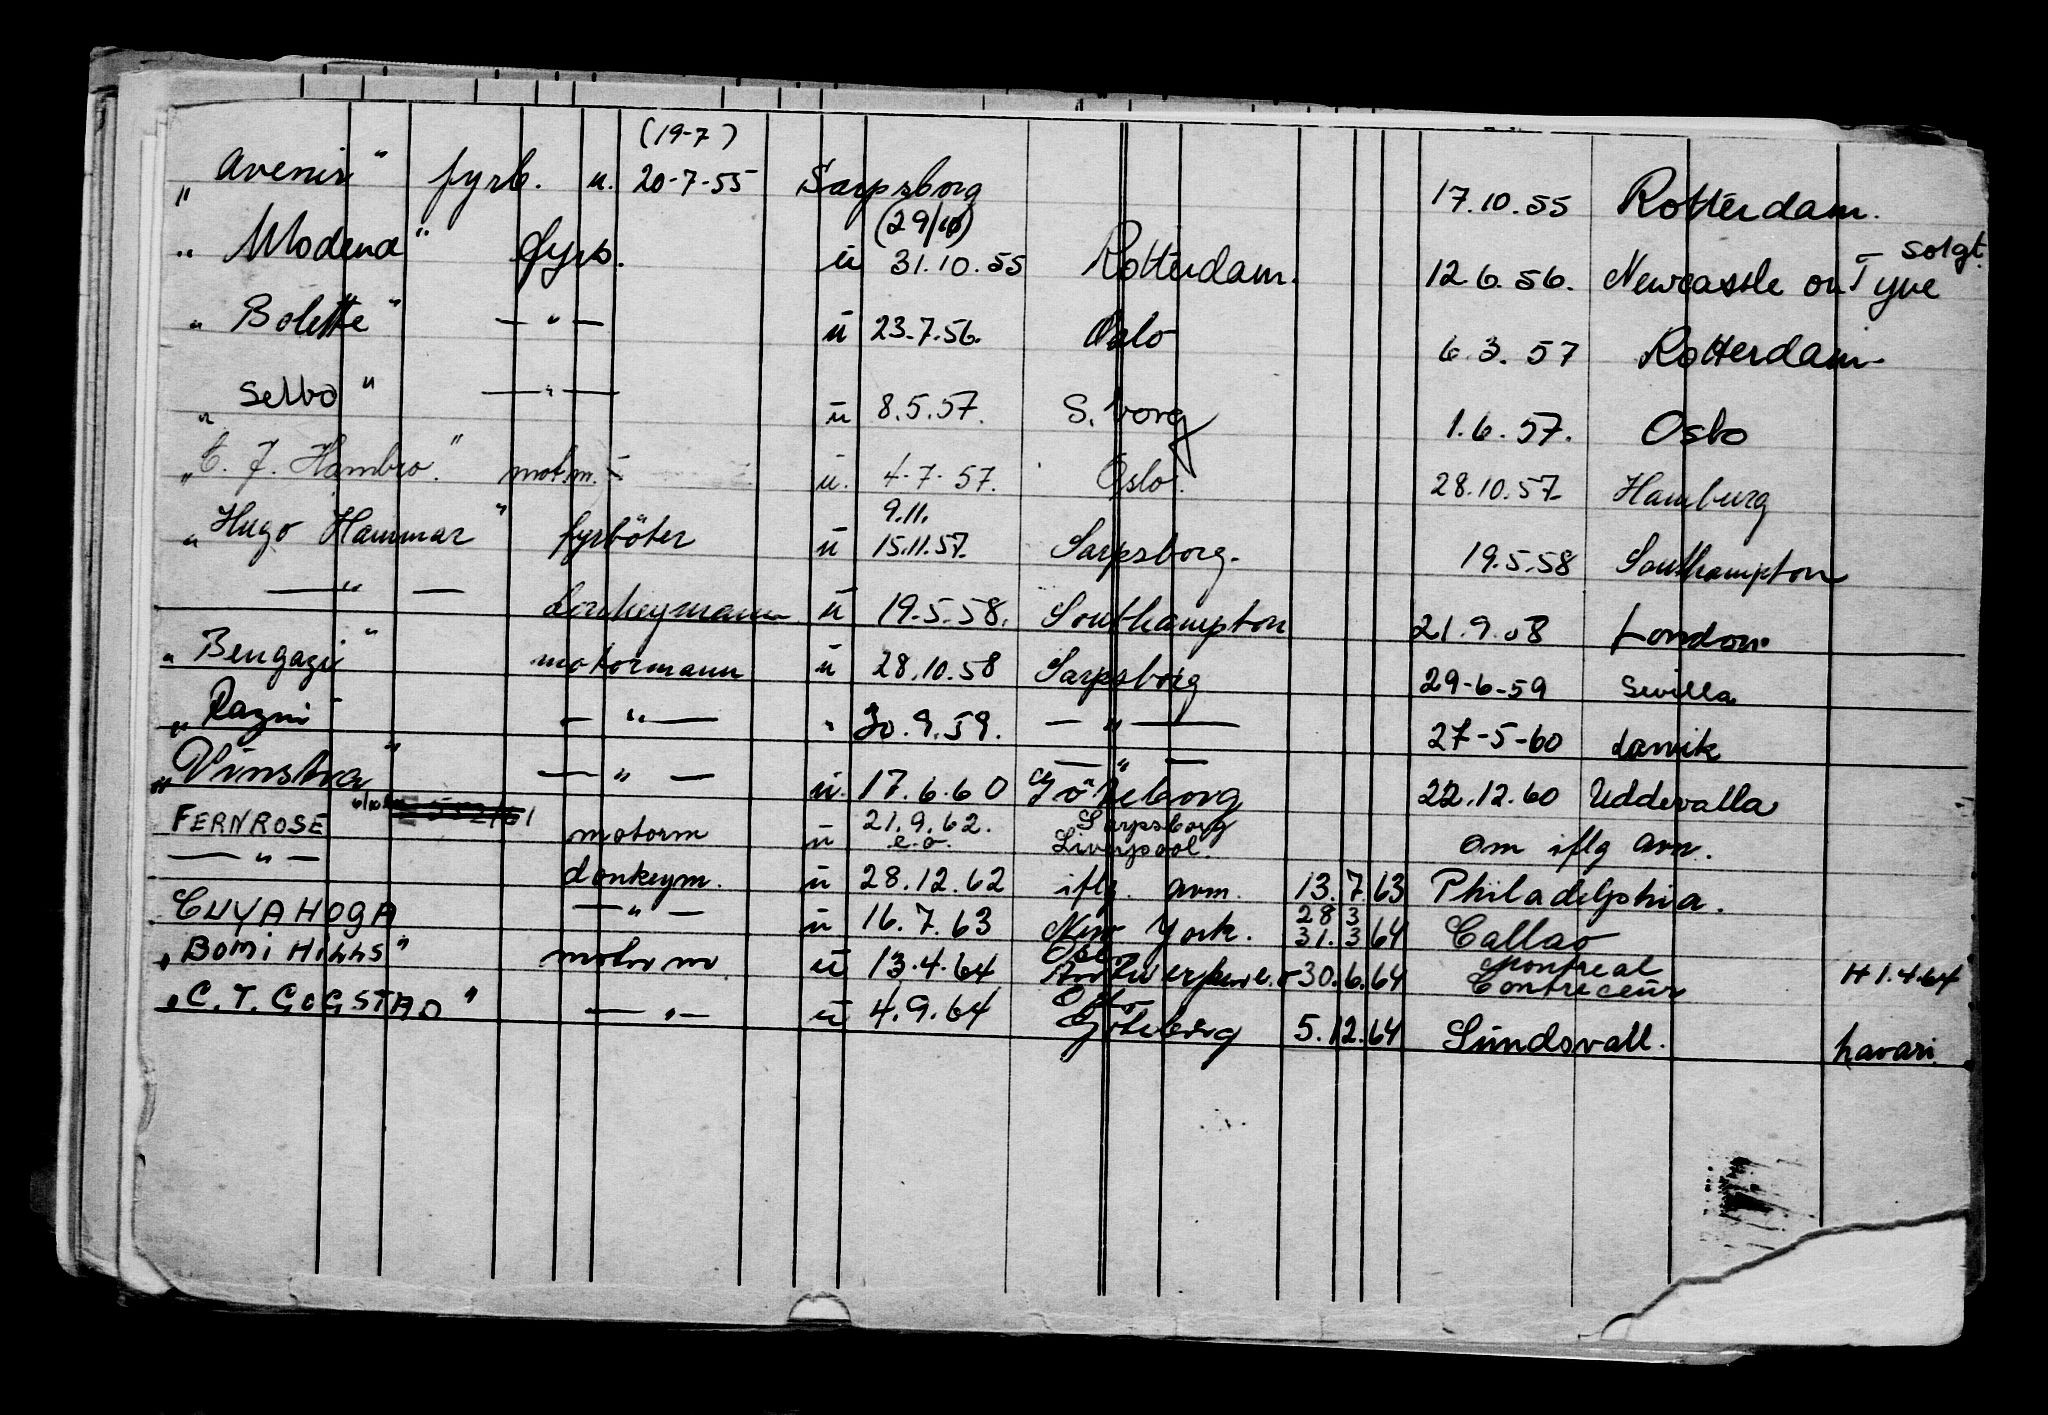 (19-7)
„Avenir" fyrb. u. 20-7-55 Sarpsborg 17.10.55 Rotterdam.
(29/10) solgt.
„Modena" fyrb. ū 31.10.55 Rotterdam. 12.6.56. Newcastle on Tyne
„Bolette" — " — ū 23.7.56. Oslo 6.3.57 Rotterdam
„Selbo" — " — ū 8.5.57. S.borg 1.6.57. Oslo
„C. J. Hambro." motm. ū. 4-7-57. Oslo. 28.10.57 Hamburg
9.11.
„Hugo Hammar" fyrböter ū 15.11.57. Sarpsborg. 19.5.58 Southampton
— " — Donkeymann ū 19.5.58. Southampton 21.9.58 London
„Bengazi" motormann ū 28.10.58 Sarpsborg 29-6-59 Sevilla
„Razni — " — " 30.9.59. — " — 27-5-60 Larvik
— " —
„Vinstra" — " — ū. 17.6.60 Göteborg 22.12.60 Uddevalla
21.9.62. Sarpsborg
FERNROSE motorm ū e.o. Liverpool. om iflg avm.
— " — donkeym. ū 28.12.62 iflg. avm. 13.7.63 Philadelphia.
28 3
CUYAHOGA — " — ū 16.7.63 New York. 31.3 64 Callao
Oslo Montreal
„BOMI HILLS" motorm ū 13.4.64 30.6.64 Contreceur H 1.4.64
„C.T. GOGSTAD" — " — ū 4.9.64 Göteborg 5.12.64 Sundsvall. havari.